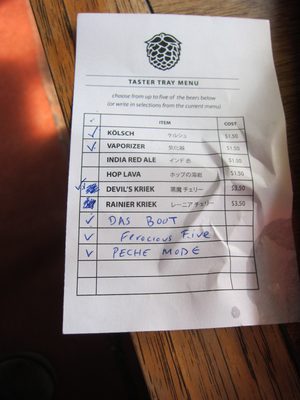 TASTER TRAY MENU
choose from up to five of the beers below
(or write in selections from the current menu)
✓ ITEM COST
✓ KÖLSCH ケルシュ $1.50
✓ VAPORIZER 気化器 $1.50
INDIA RED ALE インド 赤 $1.50
HOP LAVA ホップの溶岩 $1.50
DEVIL'S KRIEK 悪魔 チェリー $3.50
RAINIER KRIEK レーニア チェリー $3.50
✓ DAS BOOT
✓ Ferocious Five
✓ PECHE MODE